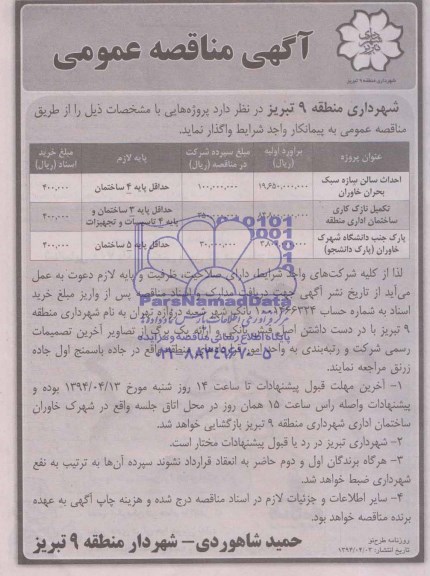 آگهی مناقصه عمومی
شهرداری منطقه ۹ تبریز
شهرداری منطقه ۹ تبریز در نظر دارد پروژه‌هایی با مشخصات ذیل را از طریق
مناقصه عمومی به پیمانکار واجد شرایط واگذار نماید.
عنوان پروژه برآورد اولیه (ریال) مبلغ سپرده شرکت در مناقصه (ریال) پایه لازم مبلغ خرید اسناد (ریال)
احداث سالن سازه سبک بحران خاوران ۱۹,۶۵۰,۰۰۰,۰۰۰ ۱۰۰,۰۰۰,۰۰۰ حداقل پایه ۴ ساختمان ۴۰۰,۰۰۰
تکمیل نازک کاری ساختمان اداری منطقه حداقل پایه ۳ ساختمان و پایه ۴ تاسیسات و تجهیزات ۴۰۰,۰۰۰
پارک جنب دانشگاه شهرک خاوران (پارک دانشجو) ۳۰,۰۰۰,۰۰۰ حداقل پایه ۵ ساختمان ۴۰۰,۰۰۰
لذا از کلیه شرکت‌های واجد شرایط دارای صلاحیت، ظرفیت و پایه لازم دعوت به عمل
می‌آید از تاریخ نشر آگهی جهت دریافت مدارک و اسناد مناقصه پس از واریز مبلغ خرید
اسناد به شماره حساب بانک شهر شعبه دروازه تهران به نام شهرداری منطقه
۹ تبریز با در دست داشتن اصل فیش بانکی و ارائه یک برگ از تصاویر آخرین تصمیمات
رسمی شرکت و رتبه‌بندی به واحد امور قراردادهای منطقه واقع در جاده باسمنج اول جاده
زرنق مراجعه نمایند.
۱- آخرین مهلت قبول پیشنهادات تا ساعت ۱۴ روز شنبه مورخ ۱۳۹۴/۰۴/۱۳ بوده و
پیشنهادات واصله راس ساعت ۱۵ همان روز در محل اتاق جلسه واقع در شهرک خاوران
ساختمان اداری شهرداری منطقه ۹ تبریز بازگشایی خواهد شد.
۲- شهرداری تبریز در رد یا قبول پیشنهادات مختار است.
۳- هرگاه برندگان اول و دوم حاضر به انعقاد قرارداد نشوند سپرده آن‌ها به ترتیب به نفع
شهرداری ضبط خواهد شد.
۴- سایر اطلاعات و جزئیات لازم در اسناد مناقصه درج شده و هزینه چاپ آگهی به عهده
برنده مناقصه خواهد بود.
حمید شاهوردی- شهردار منطقه ۹ تبریز
روزنامه طرح‌نو
تاریخ انتشار: ۱۳۹۴/۰۴/۰۳
ParsNamadData
پایگاه اطلاع رسانی مناقصه و مزایده
۰۲۱-۸۸۳۴۹۶۷۰-۵